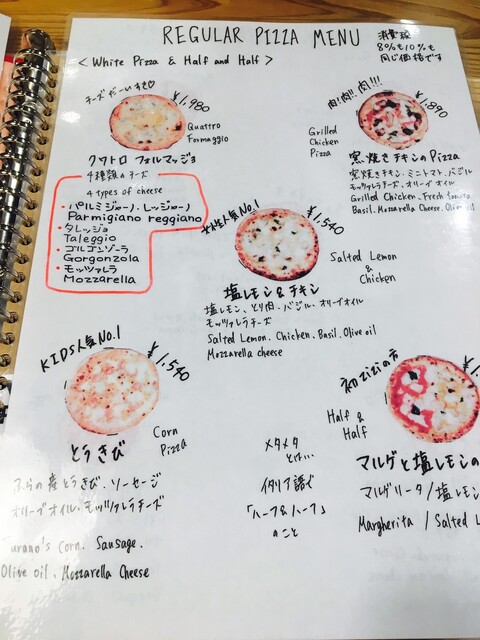 REGULAR PIZZA MENU
消費税
8%も10%も
同じ価格です
< White Pizza & Half and Half >
チーズやーいすき♡
¥1,980
Quattro
Formaggio
クワトロ フォルマッジョ
4種類のチーズ
4 types of cheese
・パルミジャーノ・レッジャーノ
Parmigiano reggiano
・タレッジョ
Taleggio
・ゴルゴンゾーラ
Gorgonzola
・モッツァレラ
Mozzarella
肉!肉!!肉!!!
¥1,890
Grilled
Chicken
Pizza
窯焼きチキンのPizza
窯焼きチキン、ミニトマト、バジル
モッツァレラチーズ、オリーブオイル
Grilled Chicken. Fresh tomato.
Basil. Mozzarella Cheese. Olive oil
女性人気No.1
¥1,540
Salted Lemon
&
Chicken
塩レモン&チキン
塩レモン、とり肉、バジル、オリーブオイル
モッツァレラチーズ
Salted Lemon. Chicken. Basil. Olive oil
Mozzarella cheese
KIDS人気No.1
¥1,540
Corn
Pizza
とうきび
ふらの産とうきび、ソーセージ
オリーブオイル、モッツァレラチーズ
Furano's Corn. Sausage.
Olive oil. Mozzarella Cheese
メタメタ
とは…
イタリア語で
「ハーフ&ハーフ」
のこと
の方
¥1
Half &
Half
マルゲと塩レモンの
マルゲリータ/塩レモン
Margherita / Salted L